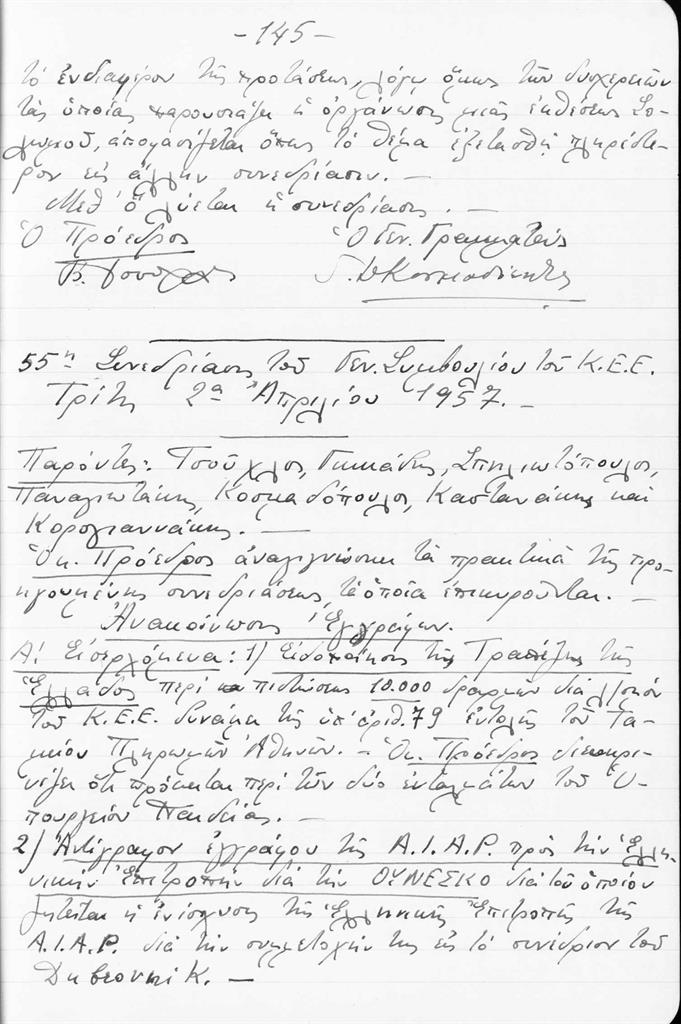 -145-
τὸ ἐνδιαφέρον τῆς προτάσεως, λόγῳ ὅμως τῶν δυσχερειῶν
τὰς ὁποίας παρουσιάζει ἡ ὀργάνωσις μιᾶς ἐκθέσεως Σο-
λωμοῦ, ἀποφασίζεται ὅπως τὸ θέμα ἐξετασθῇ πληρέστε-
ρον εἰς ἄλλην συνεδρίασιν. —
Μεθ' ὃ λύεται ἡ συνεδρίασις. —
Ὁ Πρόεδρος Ὁ Γεν. Γραμματεύς
55η Συνεδρίασις τοῦ Γεν. Συμβουλίου τοῦ Κ.Ε.Ε.
Τρίτη 2α Ἀπριλίου 1957. —
Παρόντες: Τσοῦχλος, Σπηλιωτόπουλος,
Παναγιωτάκης, Κοσμαδόπουλος, Καστανάκης καὶ
Κορογιαννάκης. —
Ὁ κ. Πρόεδρος ἀναγιγνώσκει τὰ πρακτικὰ τῆς προ-
ηγουμένης συνεδριάσεως τὰ ὁποῖα ἐπικυροῦνται. —
Ἀνακοίνωσις Ἐγγράφων.
Α! Εἰσερχόμενα: 1) Εἰδοποίησις τῆς Τραπέζης τῆς
Ἑλλάδος περὶ πιστώσεως 10.000 δραχμῶν διὰ λ/σμὸν
τοῦ Κ.Ε.Ε. δυνάμει τῆς ὑπ' ἀριθ. 79 ἐντολῆς τοῦ Τα-
μείου Πληρωμῶν Ἀθηνῶν. — Ὁ κ. Πρόεδρος διευκρι-
νίζει ὅτι πρόκειται περὶ τῶν δύο ἐνταλμάτων τοῦ Ὑ-
πουργείου Παιδείας. —
2) Ἀντίγραφον ἐγγράφου τῆς A.I.A.P. πρὸς τὴν Ἑλλη-
νικὴν Ἐπιτροπὴν διὰ τὴν ΟΥΝΕΣΚΟ διὰ τοῦ ὁποίου
ζητεῖται ἡ ἐνίσχυσις τῆς Ἑλληνικῆς Ἐπιτροπῆς τῆς
A.I.A.P. διὰ τὴν συμμετοχήν της εἰς τὸ συνέδριον τοῦ
Dubrovnik. —